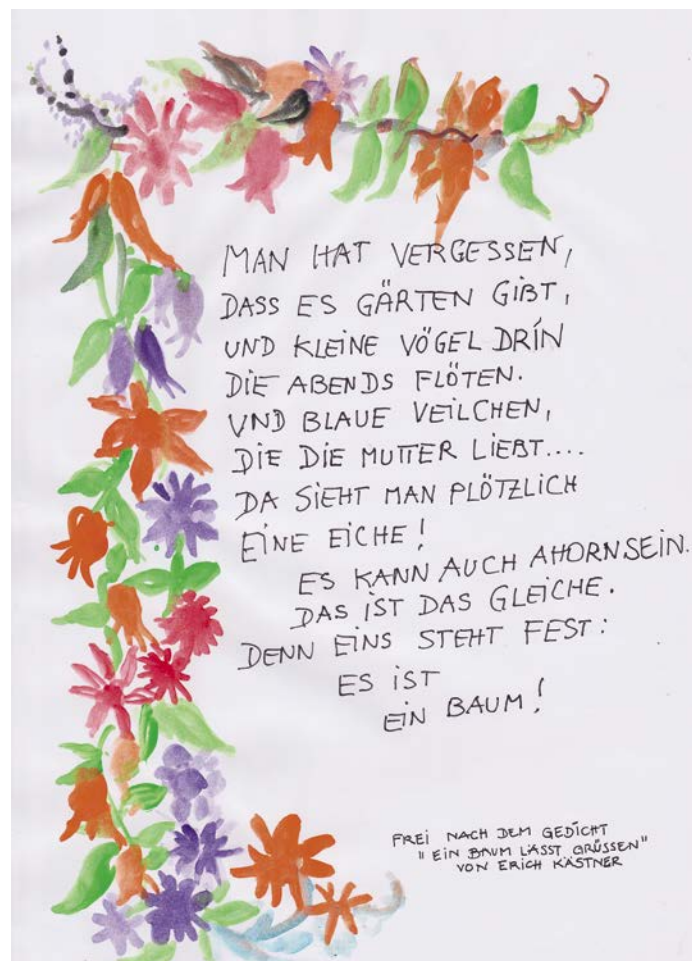 MAN HAT VERGESSEN,
DASS ES GÄRTEN GIBT,
UND KLEINE VÖGEL DRIN
DIE ABENDS FLÖTEN.
UND BLAUE VEILCHEN,
DIE DIE MUTTER LIEBT....
DA SIEHT MAN PLÖTZLICH
EINE EICHE!
ES KANN AUCH AHORN SEIN.
DAS IST DAS GLEICHE.
DENN EINS STEHT FEST:
ES IST
EIN BAUM!
FREI NACH DEM GEDICHT
"EIN BAUM LÄSST GRÜSSEN"
VON ERICH KÄSTNER